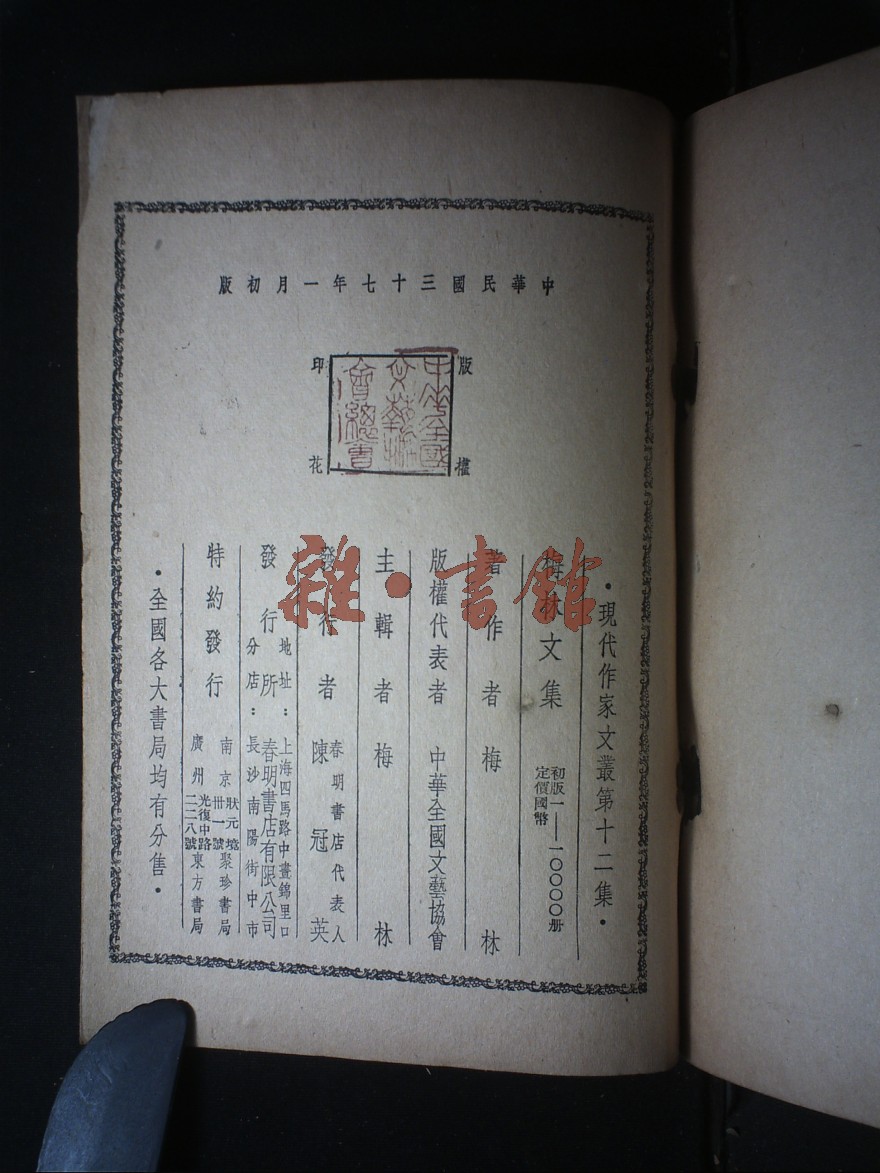 中華民國三十七年一月初版
版權印花
中華全國文藝協會總會
・現代作家文叢第十二集・
梅林文集 初版一——一〇〇〇〇册
定價國幣
著作者 梅林
版權代表者 中華全國文藝協會
主輯者 梅林
發行者 春明書店代表人
陳冠英
發行所 春明書店有限公司
地址：上海四馬路中畫錦里口
分店：長沙南陽街中市
特約發行 南京狀元境卅一號聚珍書局
廣州光復中路二二八號東方書局
・全國各大書局均有分售・
雜・書館